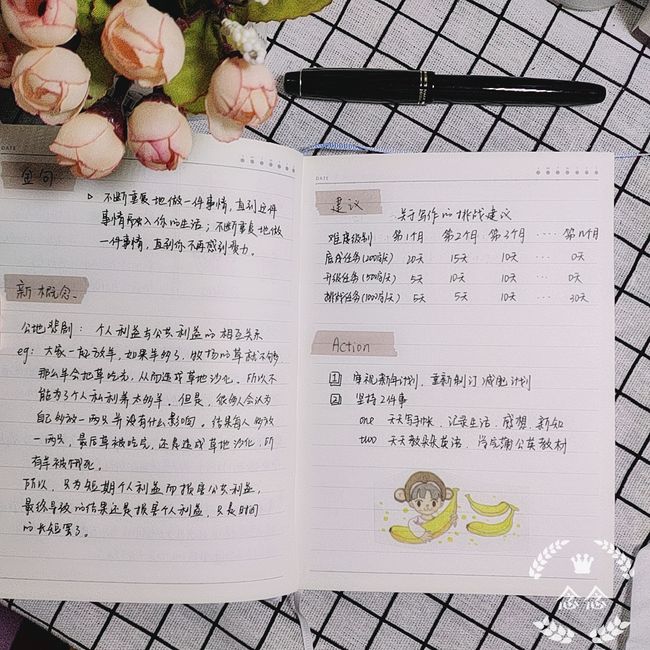 DATE
金句
▷ 不断重复地做一件事情,直到这件
事情融入你的生活;不断重复地做
一件事情,直到你不再感到费力。
新概念
公地悲剧:个人利益与公共利益的相互关系
eg:大家一起放羊,如果羊多了,牧场的草就不够
那么羊会把草吃光,从而造成草地沙化。所以不
能为了个人私利养太多羊。但是,很多人会认为
自己多放一两只并没有什么影响。结果每人多放
一两只,最后草被吃完,还是造成草地沙化,所
有羊被饿死。
所以,只为短期个人利益而损害公共利益,
最终导致的结果还是损害个人利益,只是时间
的长短罢了。
DATE
建议
关于写作的挑战建议
难度级别 第1个月 第2个月 第3个月 ···· 第n个月
底线任务(200字/天) 20天 15天 10天 ··· 0天
升级任务(500字/天) 5天 10天 10天 ··· 0天
挑战任务(1000字/天) 5天 5天 10天 ··· 30天
Action
1 审视新年计划,重新制订减肥计划
2 坚持2件事
one 天天写手帐,记录生活、感想、新知
two 天天教朵朵英语,
念念